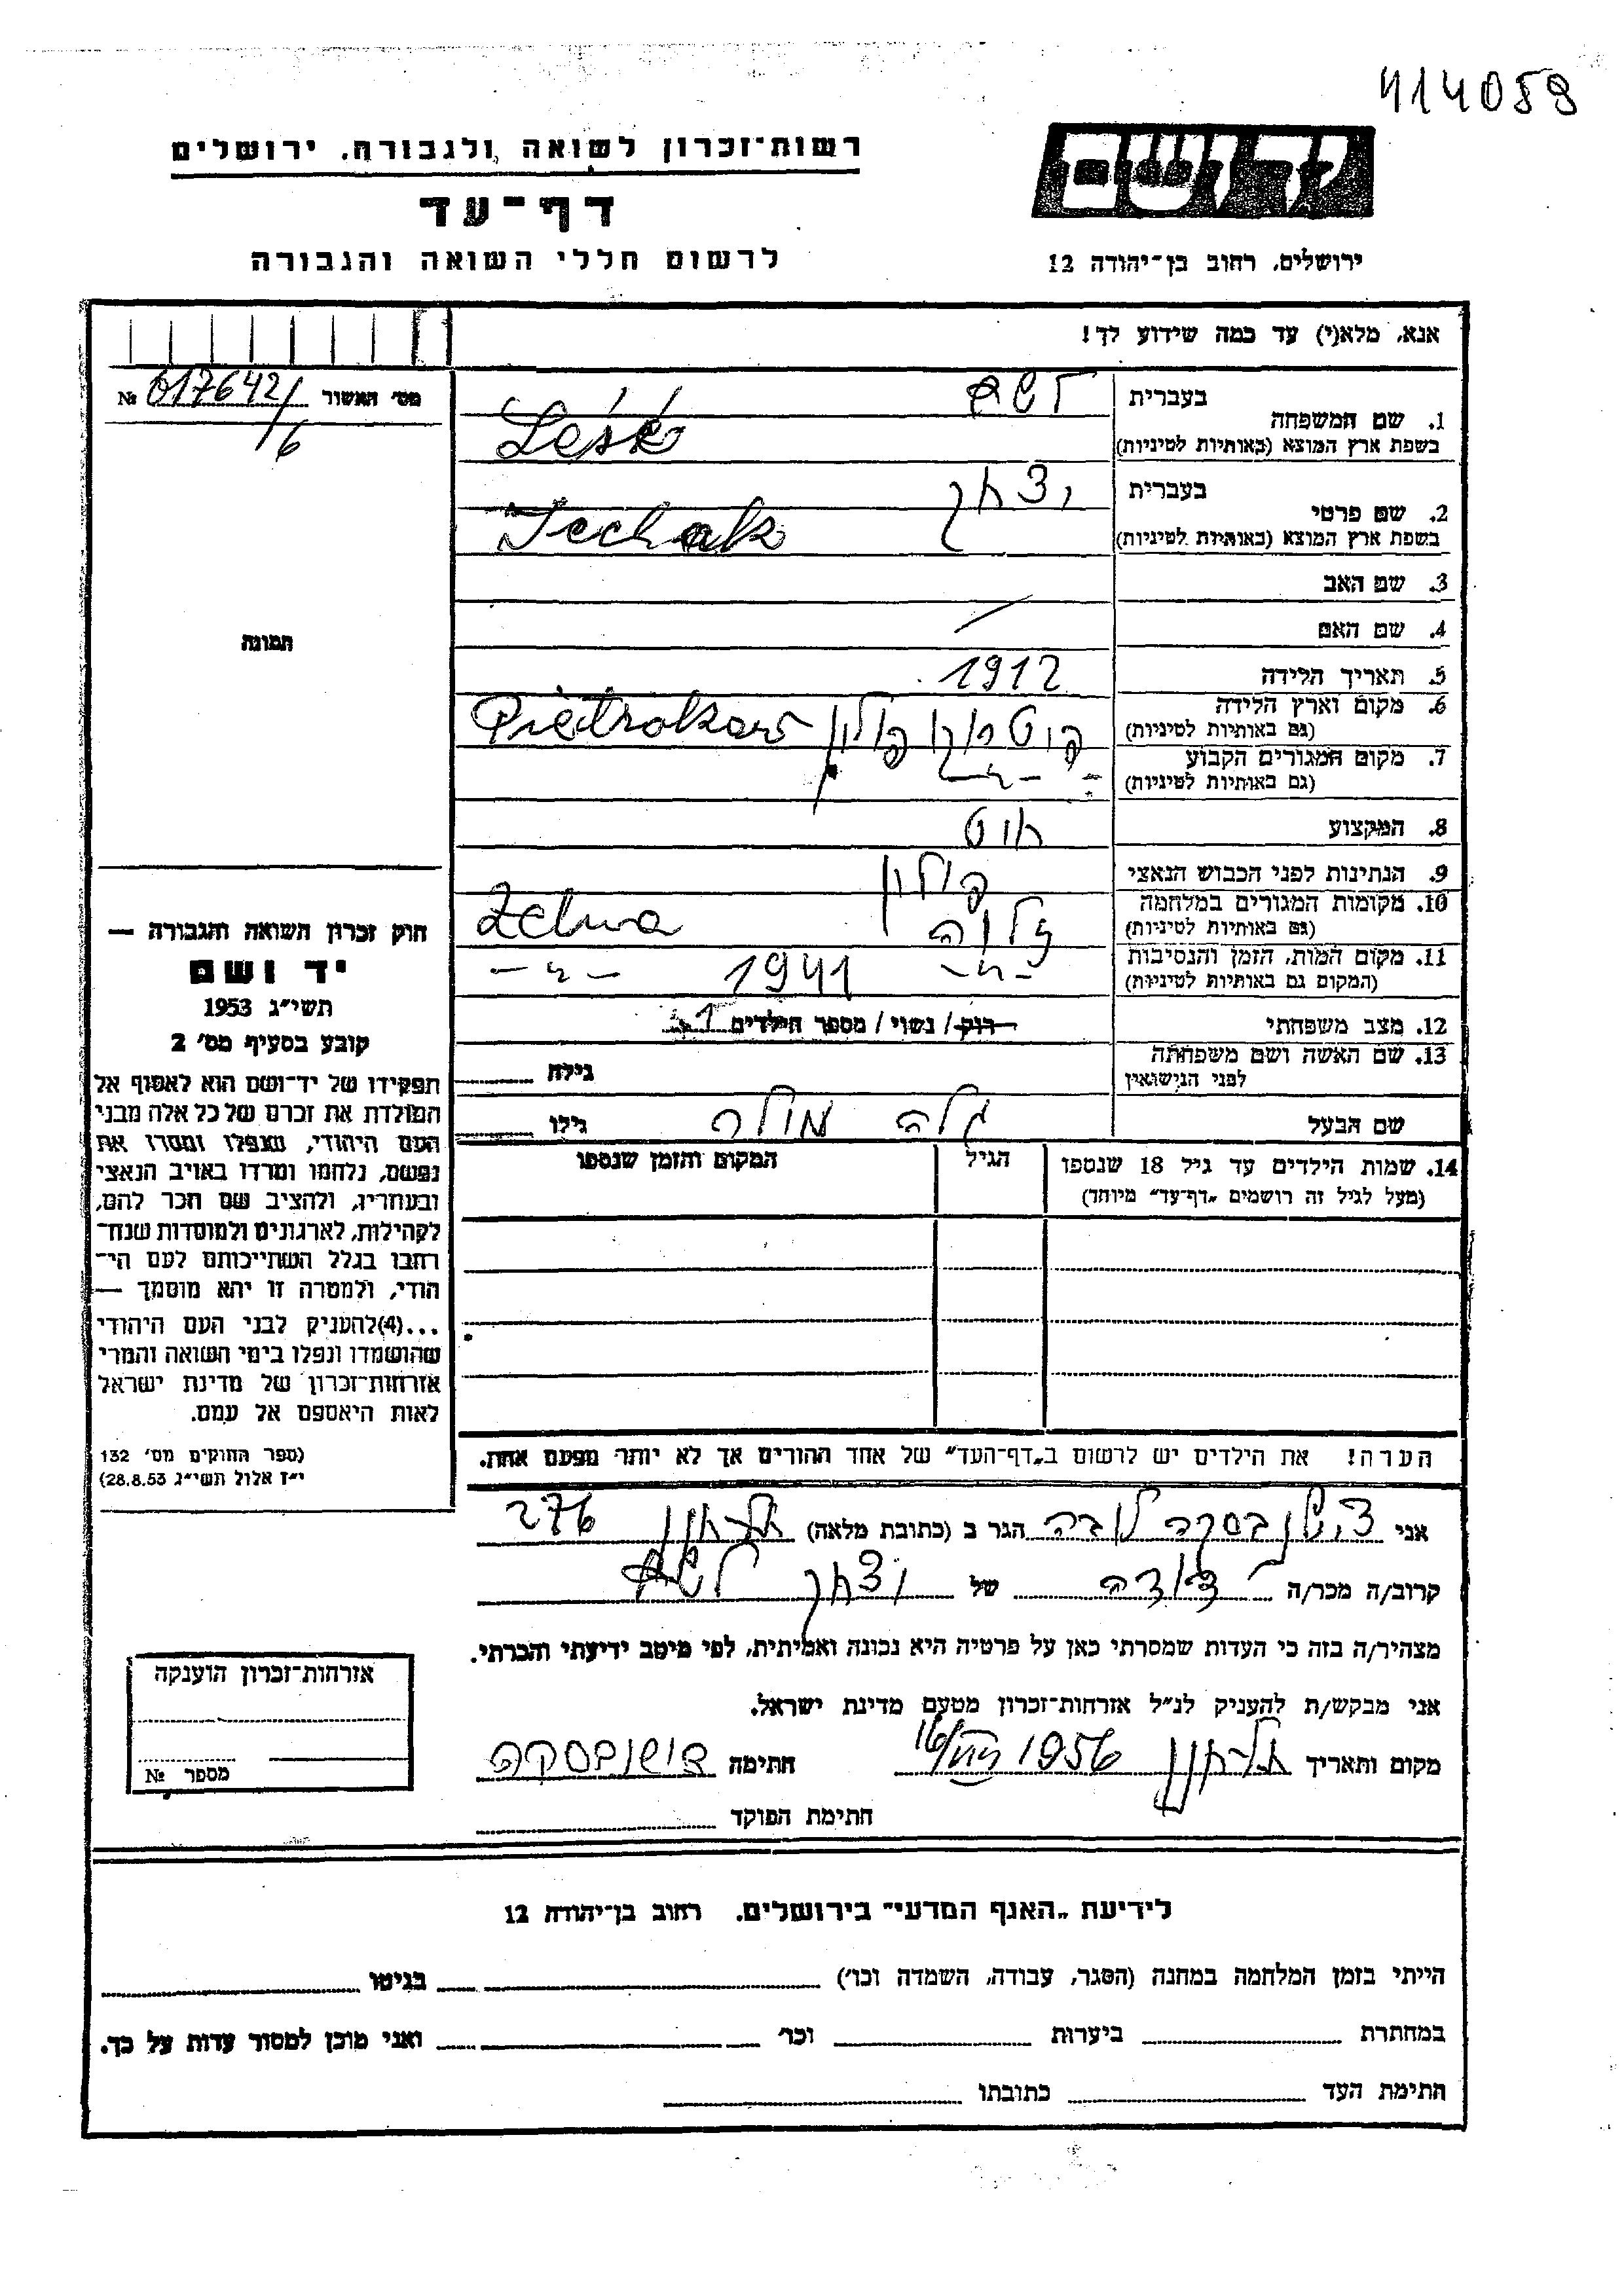 414059
רשות־זכרון לשואה ולגבורה, ירושלים
יד ושם
דף־עד
לרשום חללי השואה והגבורה
ירושלים, רחוב בן־יהודה 12
אנא, מלא(י) עד כמה שידוע לך!
מס׳ האשור № 617642/6
1. שם המשפחה בעברית
בשפת ארץ המוצא (באותיות לטיניות) Leśk
2. שם פרטי בעברית יצחק
בשפת ארץ המוצא (באותיות לטיניות) Icchak
3. שם האב
4. שם האם
תמונה
5. תאריך הלידה 1912
6. מקום וארץ הלידה (גם באותיות לטיניות) פולין Pietrokow
7. מקום המגורים הקבוע (גם באותיות לטיניות) -"-
8. המקצוע
9. הנתינות לפני הכבוש הנאצי פולין
10. מקומות המגורים במלחמה (גם באותיות לטיניות) זלוה Zelwa
11. מקום המות, הזמן והנסיבות (המקום גם באותיות לטיניות) -"- 1941 -"-
12. מצב משפחתי רוק/ נשוי/ מספר הילדים 1
13. שם האשה ושם משפחתה לפני הנישואין גילה
שם הבעל גילו
14. שמות הילדים עד גיל 18 שנספו הגיל המקום והזמן שנספו
(מעל לגיל זה רושמים „דף־עד” מיוחד)
חוק זכרון השואה והגבורה —
יד ושם
תשי״ג 1953
קובע בסעיף מס׳ 2
תפקידו של יד־ושם הוא לאסוף אל
המולדת את זכרם של כל אלה מבני
העם היהודי, שנפלו ומסרו את
נפשם, נלחמו ומרדו באויב הנאצי
ובעוזריו, ולהציב שם וזכר להם,
לקהילות, לארגונים ולמוסדות שנח־
רחבו בגלל השתייכותם לעם הי־
הודי, ולמטרה זו יהא מוסמך —
...(4)להעניק לבני העם היהודי
שהושמדו ונפלו בימי השואה והמרי
אזרחות־זכרון של מדינת ישראל
לאות היאספם אל עמם.
(ספר החוקים מס׳ 132
י״ז אלול תשי״ג 28.8.53)
הערה! את הילדים יש לרשום ב„דף־העד” של אחד ההורים אך לא יותר מפעם אחת.
אני הגר ב (כתובת מלאה) 276
קרוב/ה מכר/ה דודה של יצחק
מצהיר/ה בזה כי העדות שמסרתי כאן על פרטיה היא נכונה ואמיתית, לפי מיטב ידיעתי והכרתי.
אני מבקש/ת להעניק לנ״ל אזרחות־זכרון מטעם מדינת ישראל.
מקום ותאריך 1956 חתימה
חתימת הפוקד
אזרחות־זכרון הוענקה
מספר №
לידיעת „האגף המדעי” בירושלים, רחוב בן־יהודה 12
הייתי בזמן המלחמה במחנה (הסגר, עבודה, השמדה וכו׳) בגיטו
במחתרת ביערות וכו׳ ואני מוכן למסור עדות על כך.
חתימת העד כתובתו